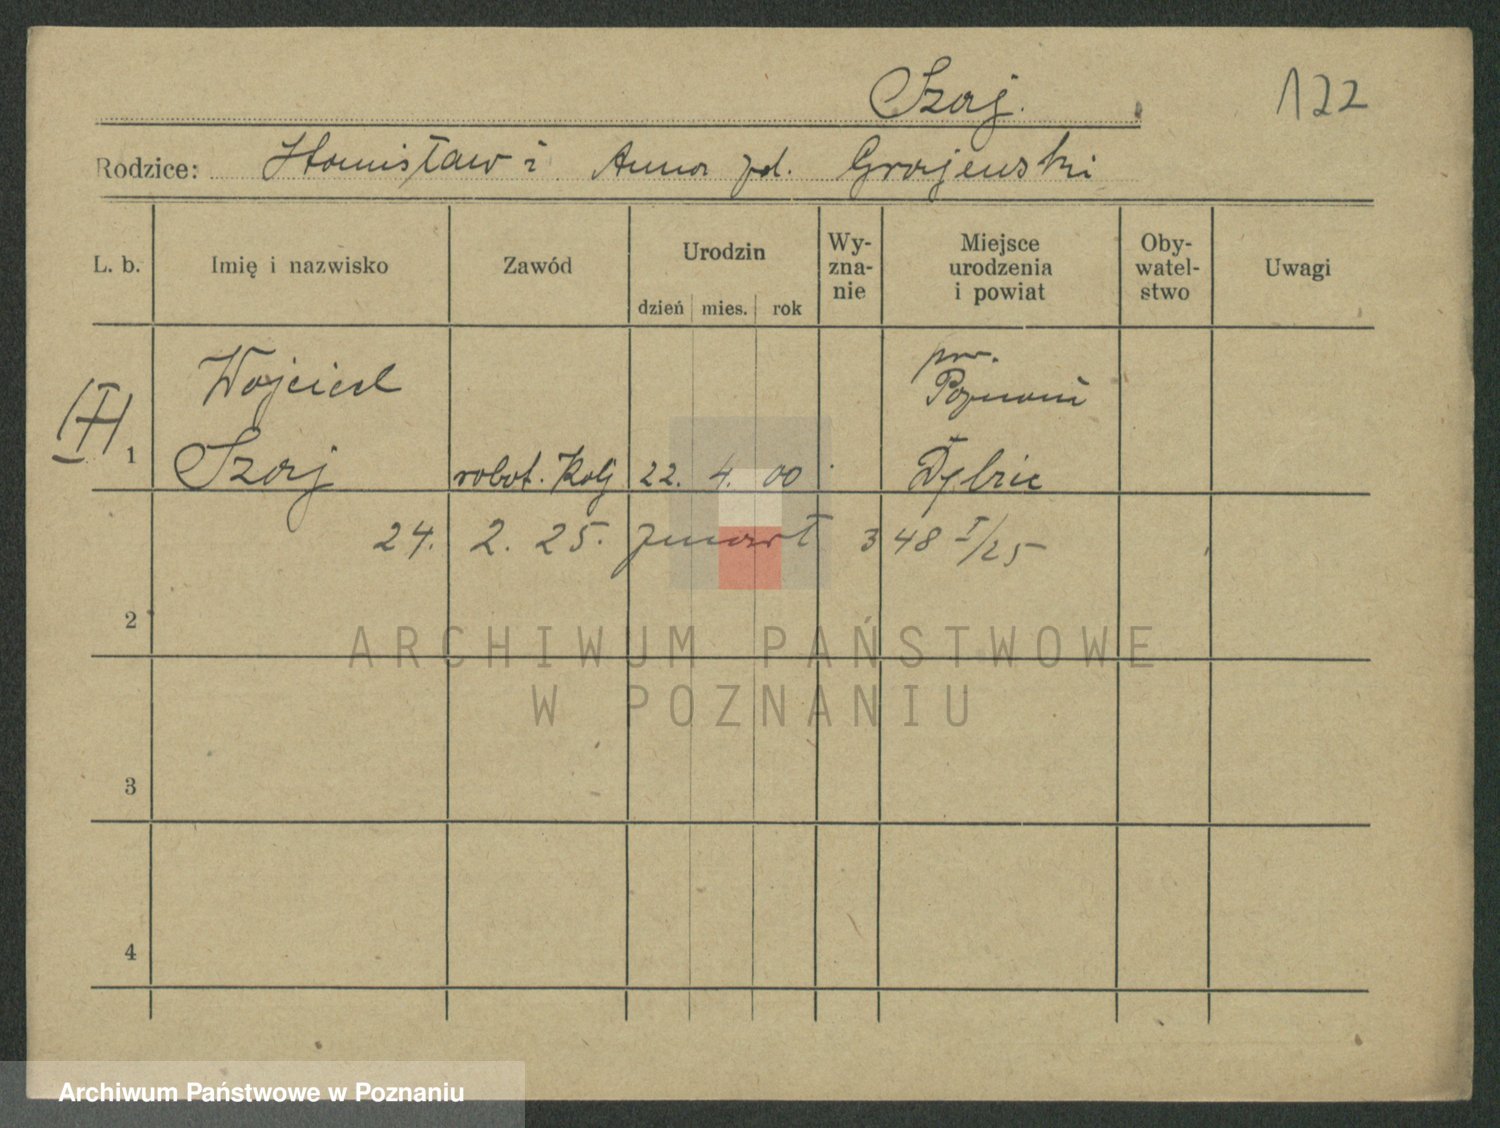 Szaj. 122
Rodzice: Stanisław i Anna zd. Grajewski
L. b. Imię i nazwisko Zawód Urodzin dzień mies. rok Wy-zna-nie Miejsce urodzenia i powiat Oby-watel-stwo Uwagi
Wojciech pow.
Poznań
1 Szaj robot. Kolj 22. 4. 00
24. 2. 25. zmarł 348 I/25
2
ARCHIWUM PAŃSTWOWE
W POZNANIU
3
4
Archiwum Państwowe w Poznaniu